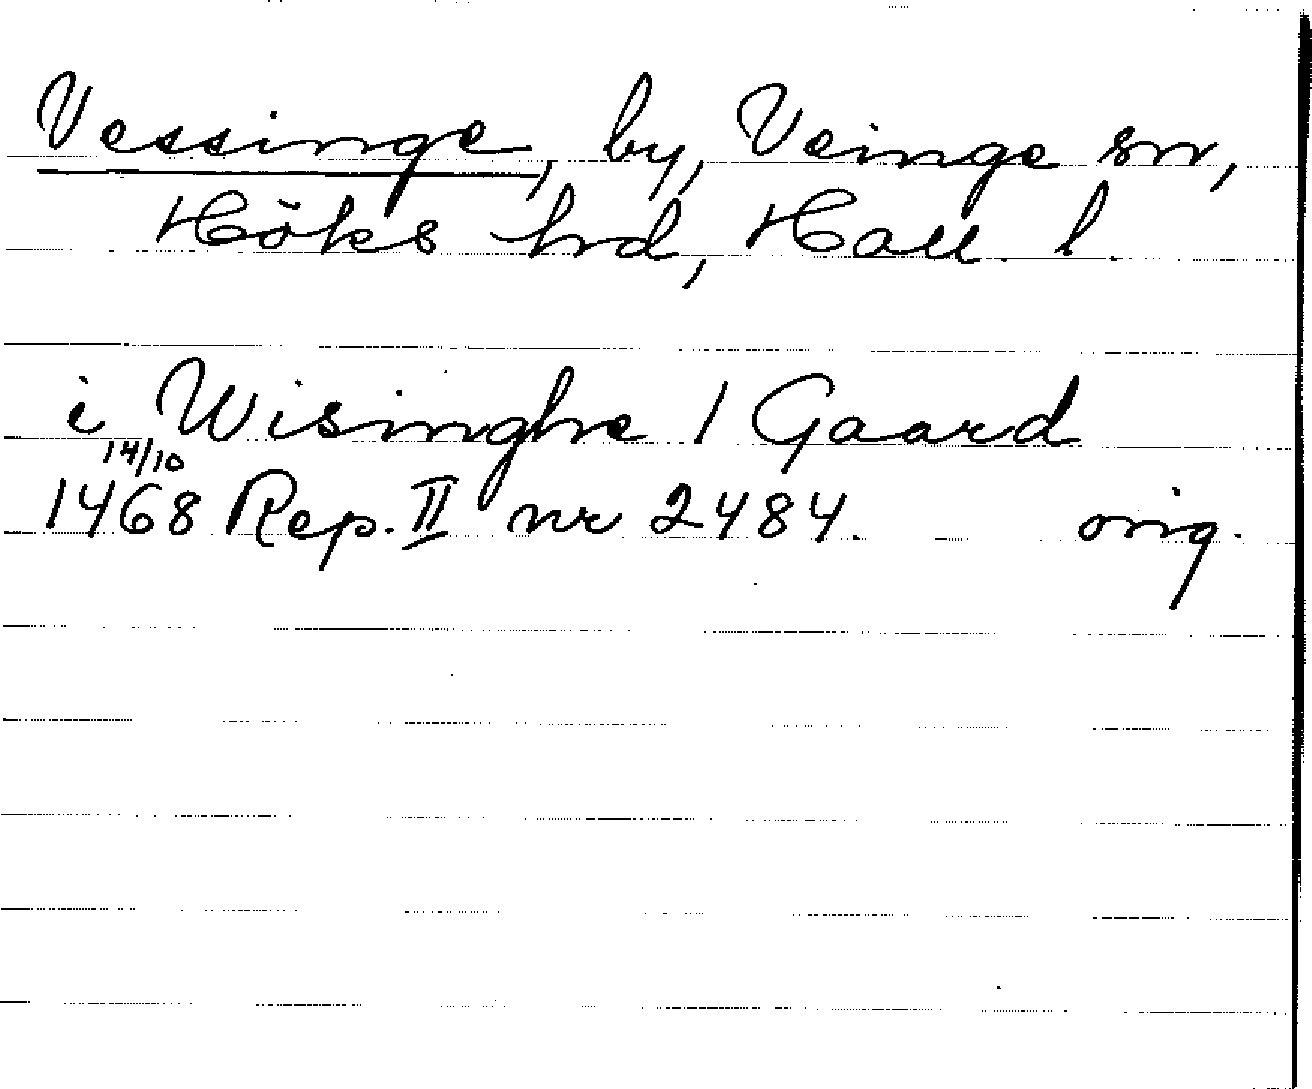 Vessinge, by, Veinge sn,
Höks hd, Hall. l.
i Wisinghe 1 Gaard
14/10
1468 Rep. II nr 2484. orig.